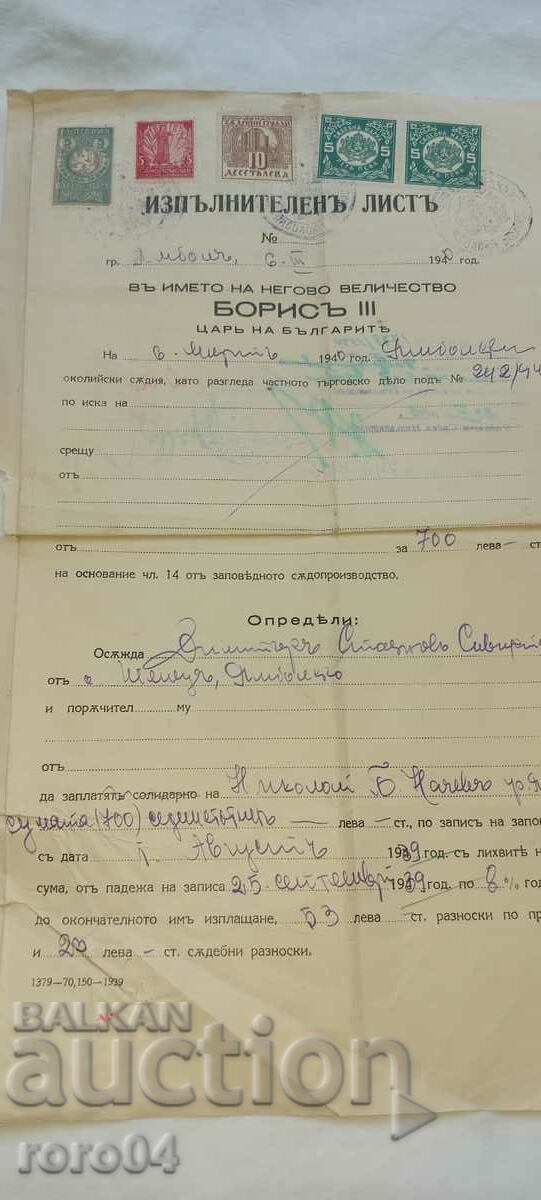 БЪЛГАРИЯ
5
10
ДЕСЕТЬ ЛЕВА
5 5
5 5
ИЗПЪЛНИТЕЛЕНЪ ЛИСТЪ
№
гр. Ямболъ, 6. III 1940 год.
ВЪ ИМЕТО НА НЕГОВО ВЕЛИЧЕСТВО
БОРИСЪ III
ЦАРЬ НА БЪЛГАРИТѢ
На 6. Мартъ 1940 год. Ямболски
околийски сѫдия, като разгледа частното търговско дѣло подъ № 242/
по иска на
срещу
отъ
отъ за 700 лева — ст
на основание чл. 14 отъ заповѣдното сѫдопроизводство.
Опредѣли:
Осѫжда Димитъръ Стояновъ
отъ с. Ямболско
и порѫчител му
отъ
да заплатятъ солидарно на Николай Б. Начевъ
сумата (700) седемстотинъ — лева — ст., по записъ на запо
съ дата 1. Августъ 1939 год. съ лихвитѣ н
сума, отъ падежа на записа 25 септемврий 1939 год. по 8 % год
до окончателното имъ изплащане, 53 лева — ст. разноски по пр
и 20 лева — ст. сѫдебни разноски.
1379—70,150—1939
BALKAN
auction
roro04